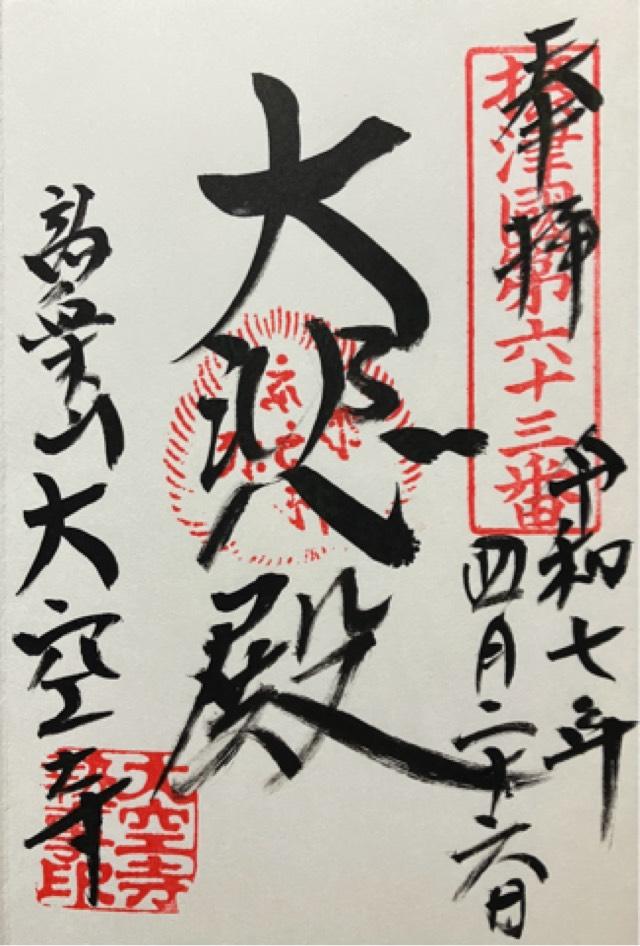 奉拝
摂津國第六十三番
令和七年
四月二十六日
大悲殿
山大空寺
大空寺
印